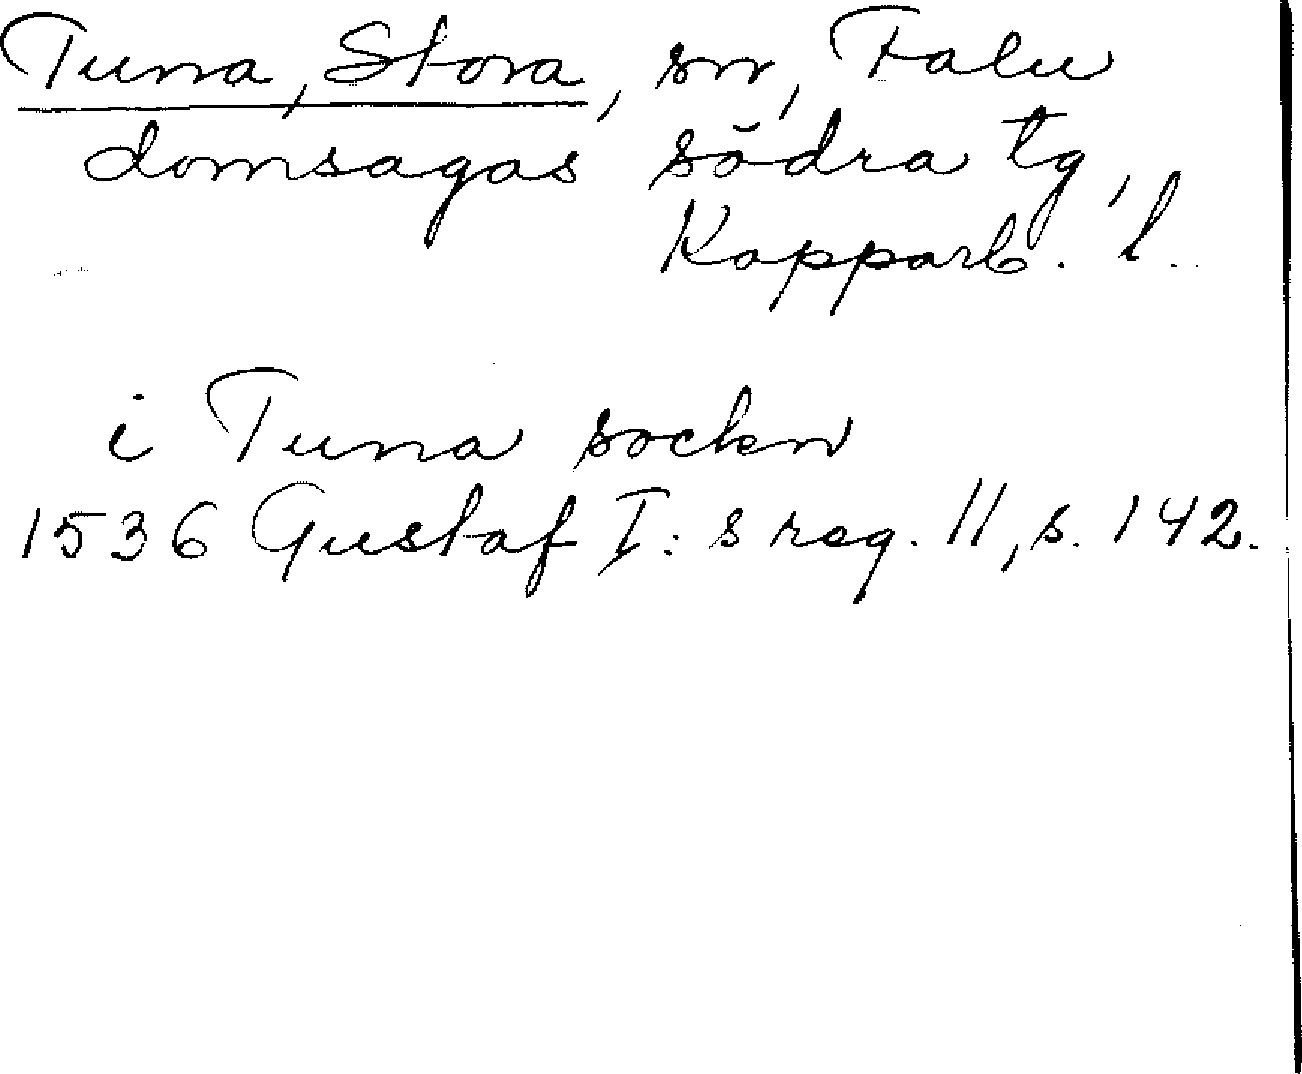 Tuna, Stora, sn, Falu
domsagas södra tg,
Kopparb. l.
i Tuna sockn
1536 Gustaf I:s reg. 11, s. 142.